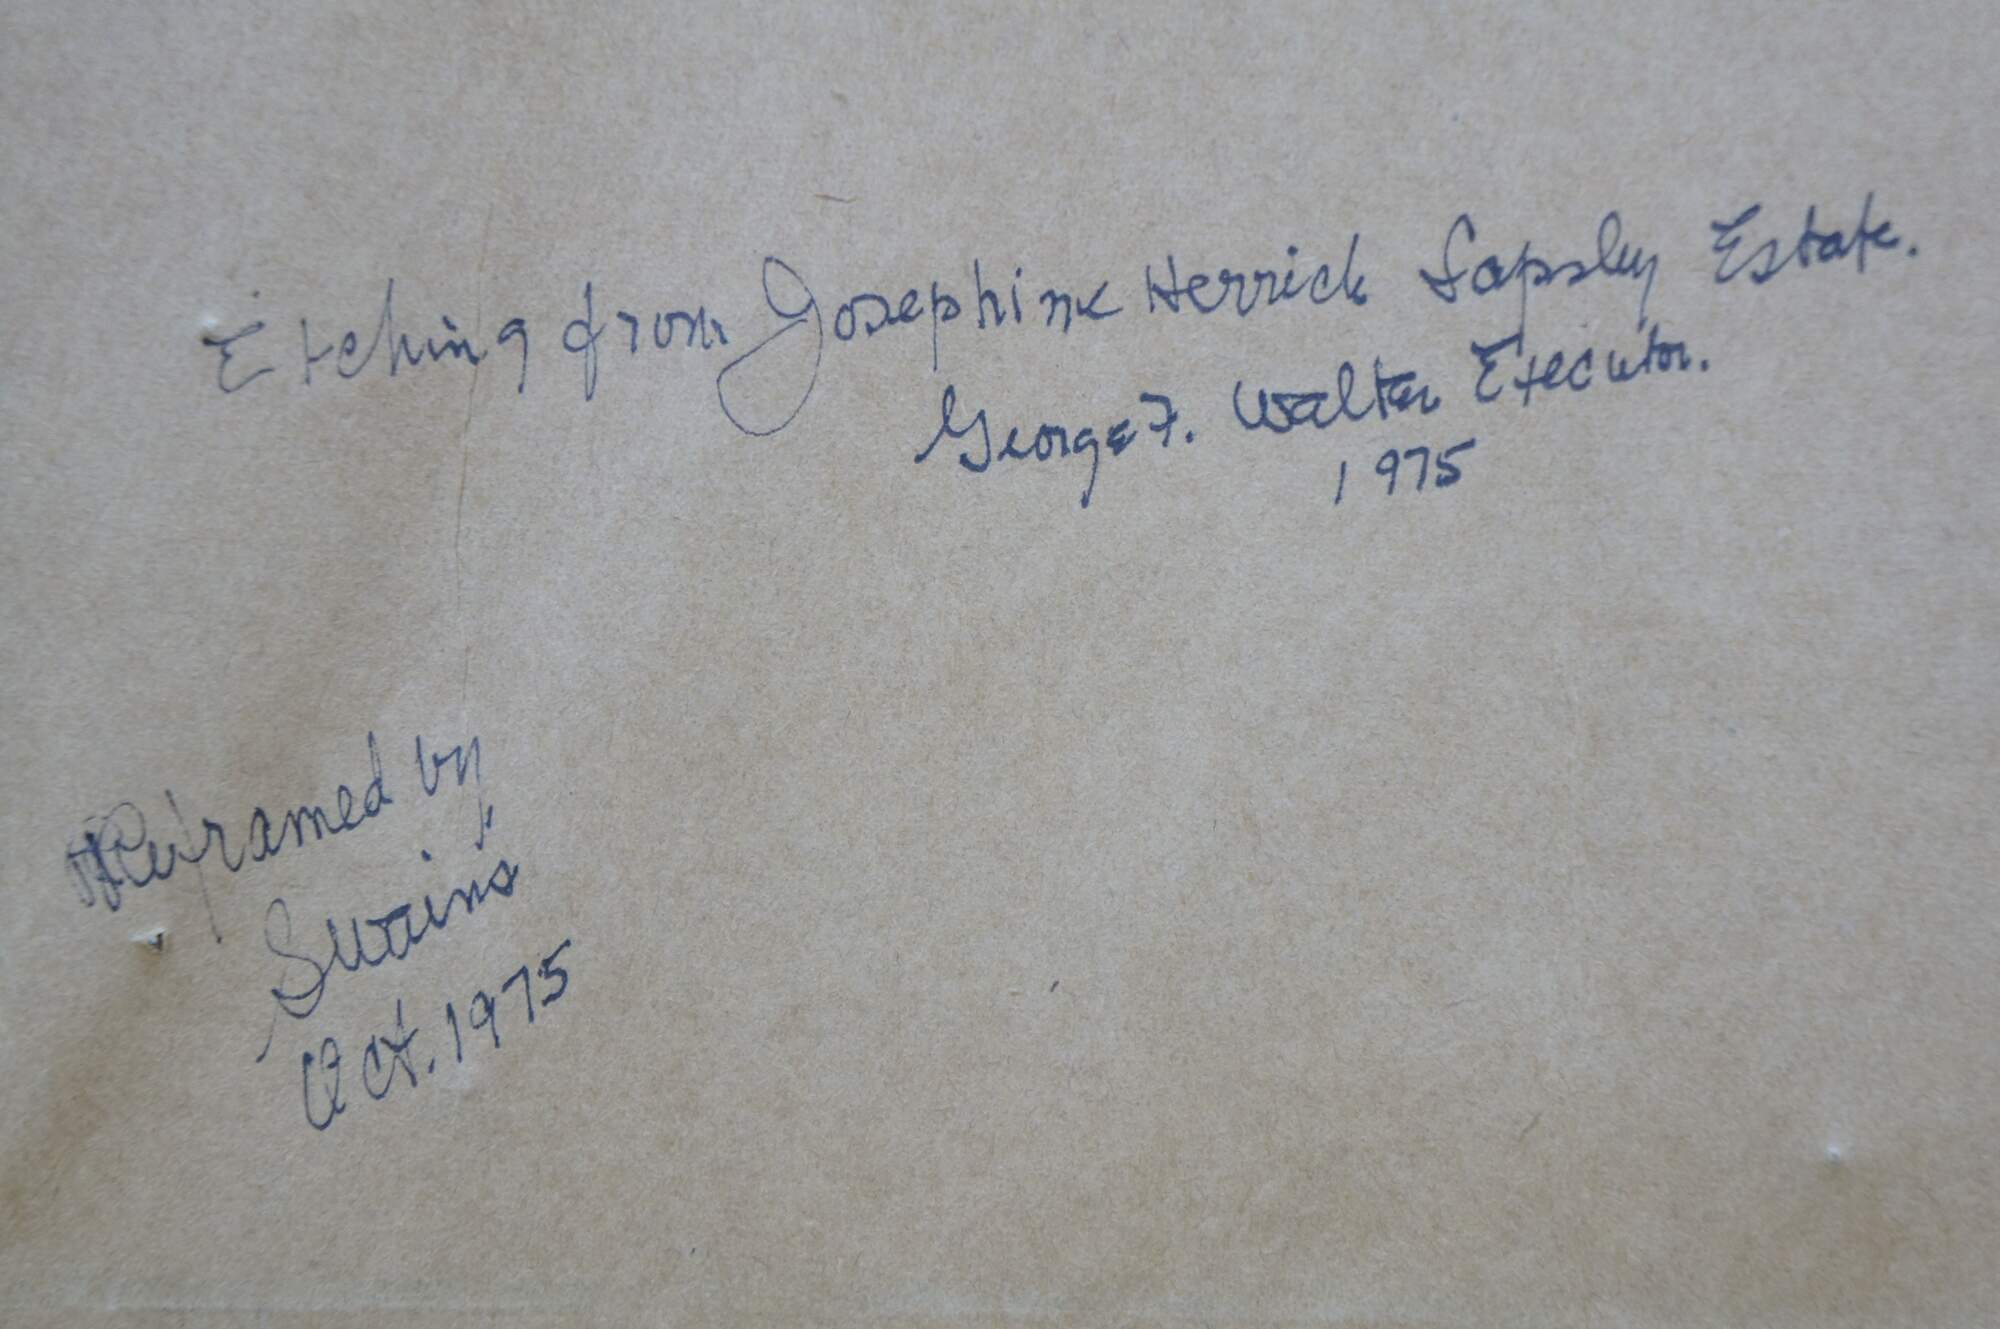 Etching from Josephine Herrick Lapsley Estate.
George F. Walter Executor.
1975
Reframed by
Swains
Oct. 1975